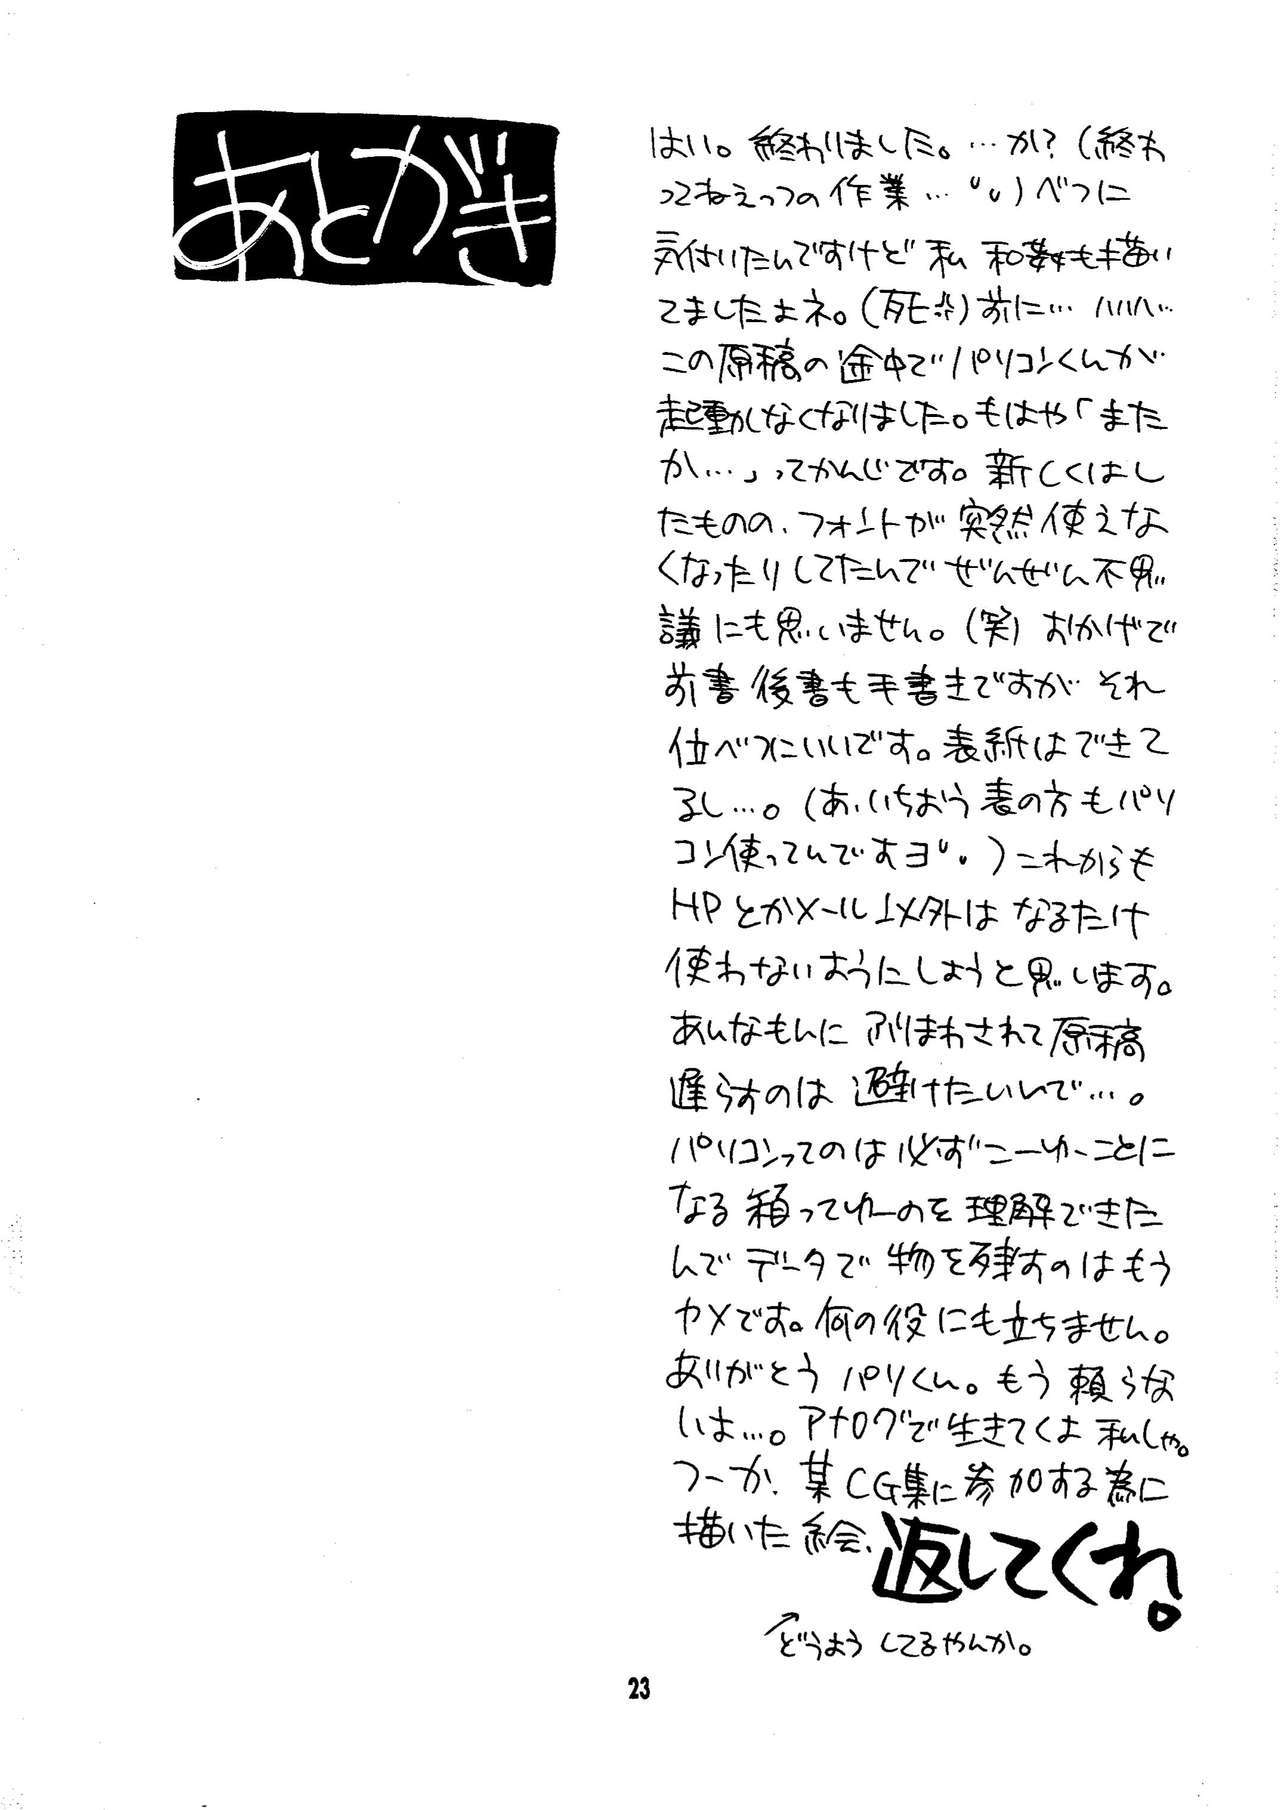 あとがき
はい。終わりました。…か?(終わ
ってねえっつの作業…)べつに
気付いたんですけど私 和姦も描い
てましたよネ。(死)前に…ハハハ…
この原稿の途中でパソコンくんが
起動しなくなりました。もはや「また
か…」ってかんじです。新しくはし
たものの、フォントが突然使えな
くなったりしてたんでぜんぜん不思
議にも思いません。(笑)おかげで
前書後書も手書きですが それ
位べつにいいです。表紙はできて
るし…。(あ、いちおう表の方もパソ
コン使ってんですヨ)これからも
HPとかメール以外は なるたけ
使わないようにしようと思います。
あんなもんに 振りまわされて原稿
遅らすのは 避けたいんで…。
パソコンってのは必ずこーゆーことに
なる箱ってゆーのを理解できたた
んでデータで物を残すのはもう
ヤメです。何の役にも立ちません。
ありがとう パソくん。もう 頼らな
いよ…。アナログで生きてくよ 私しゃ。
つーか、某CG集に参加する為に
描いた絵、返してくれ。
↗どうよう してるやんか。
23